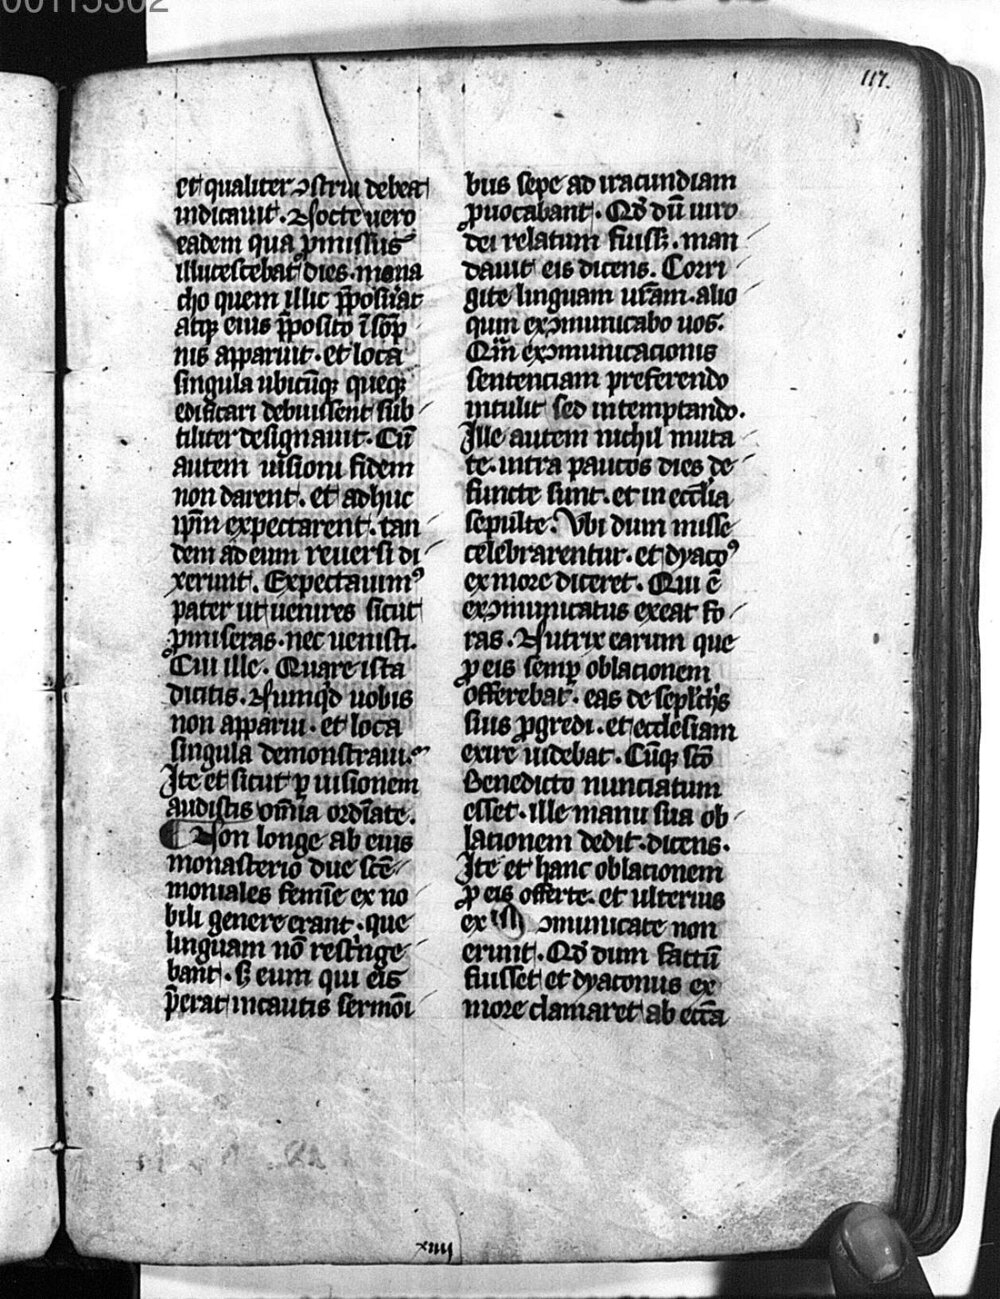 00115302
117.
et qualiter ↄstrui debeat
indicauit. Nocte uero
eadem qua ꝓmissus
illucescebat dies. mona
cho quem illic p̄posu͛at
atqꝫ eius p̄posito ī sōp
nis apparuit. et loca
singula ubicūqꝫ queqꝫ
edificari debuissent sub
tiliter designauit. Cū
autem uisioni fidem
non darent. et adhuc
ip̄m expectarent. tan
dem ad eum reuersi di
xerunt. Expectauimꝰ
pater ut uenires sicut
ꝓmiseras. nec uenisti.
Cui ille. Quare ista
dicitis. Nunqͥd uobis
non apparui. et loca
singula demonstraui.
Ite et sicut ꝑ uisionem
audistis om̄ia ordīate.
Non longe ab eius
monasterio due scē
moniales femīe ex no
bili genere erant. que
linguam nō restͥnge
bant. sꝫ eum qui eis
p̄erat incautis sermōi
bus sepe ad iracundiam
ꝓuocabant. Qd̛ dū uiro
dei relatum fuissꝫ. man
dauit eis dicens. Corri
gite linguam ur̄am. alio
quin exↄmunicabo uos.
Qm̄ exↄmunicacionis
sentenciam preferendo
intulit sed intemptando.
Ille autem nichil muta
te. intra paucos dies de
functe sunt. et in eccl̄ia
sepulte. Vbi dum misse
celebrarentur. et dyacoꝰ
ex more diceret. Qui ē
exↄmunicatus exeat fo
ras. Nutrix earum que
ꝓ eis semꝑ oblacionem
offerebat. eas de sepl̄chͥs
suis ꝓgredi. et ecclesiam
exire uidebat. Cūqꝫ scō
Benedicto nunciatum
esset. ille manu sua ob
lationem dedit. dicens.
Ite et hanc oblacionem
ꝓ eis offerte. et ulterius
ex ↄmunicate non
erunt. Qd̛ dum factū
fuisset et dyaconus ex
more clamaret ab eccͣa
xiiii